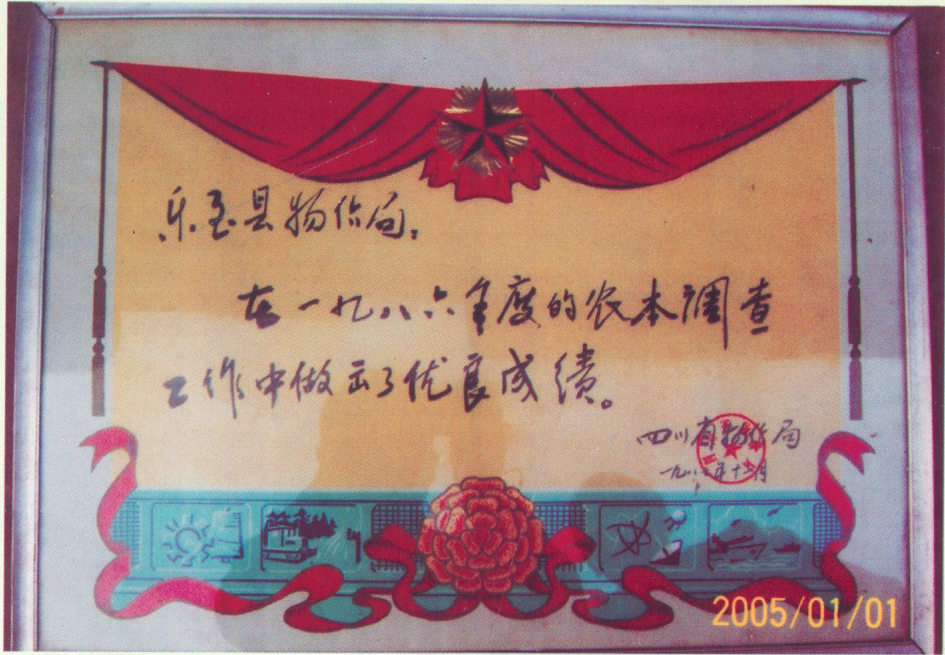 乐至县物价局：
在一九八六年度的农本调查
工作中做出了优良成绩。
四川省物价局
一九八六年十二月
2005/01/01